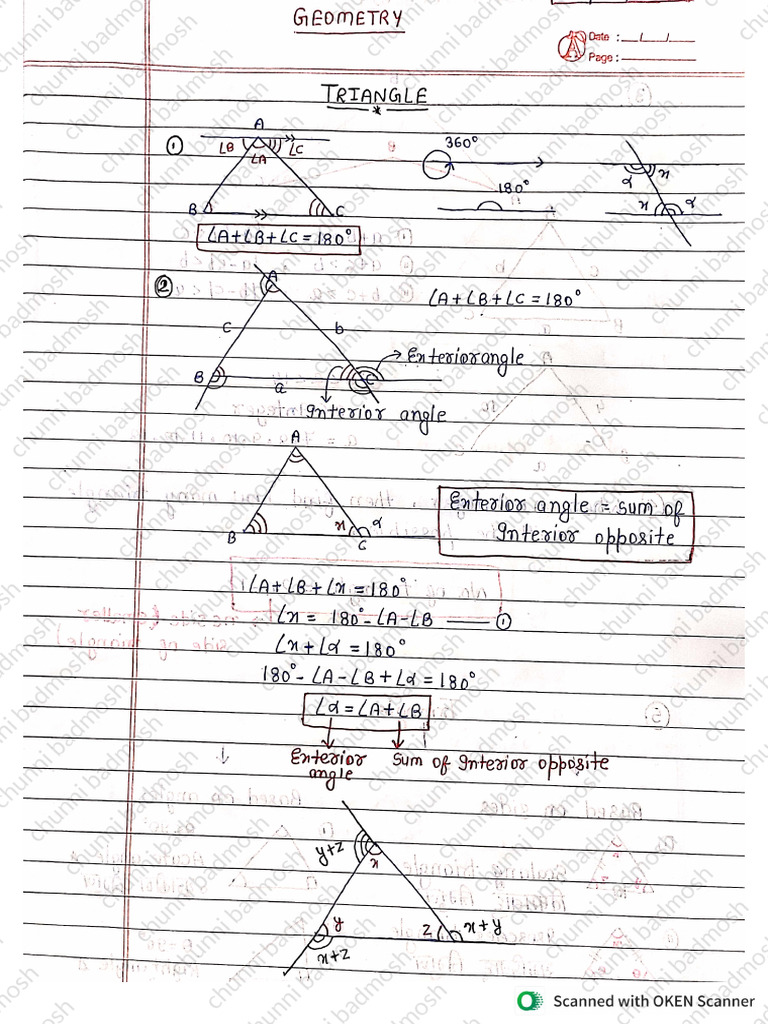 GEOMETRY
Date : __/__/__
Page :
TRIANGLE
①
A
∠B ∠A ∠C
B C
∠A+∠B+∠C = 180°
360°
180°
α x
x α
②
A
c b
B a C
∠A+∠B+∠C = 180°
Exterior angle
Interior angle
A
B x α
C
Exterior angle = sum of
Interior opposite
∠A+∠B+∠x = 180°
∠x = 180° - ∠A - ∠B —— ①
∠x + ∠α = 180°
180° - ∠A - ∠B + ∠α = 180°
∠α = ∠A + ∠B
Exterior angle
Sum of Interior opposite
y+z
x
y z x+y
x+z
chunni badmosh
Scanned with OKEN Scanner